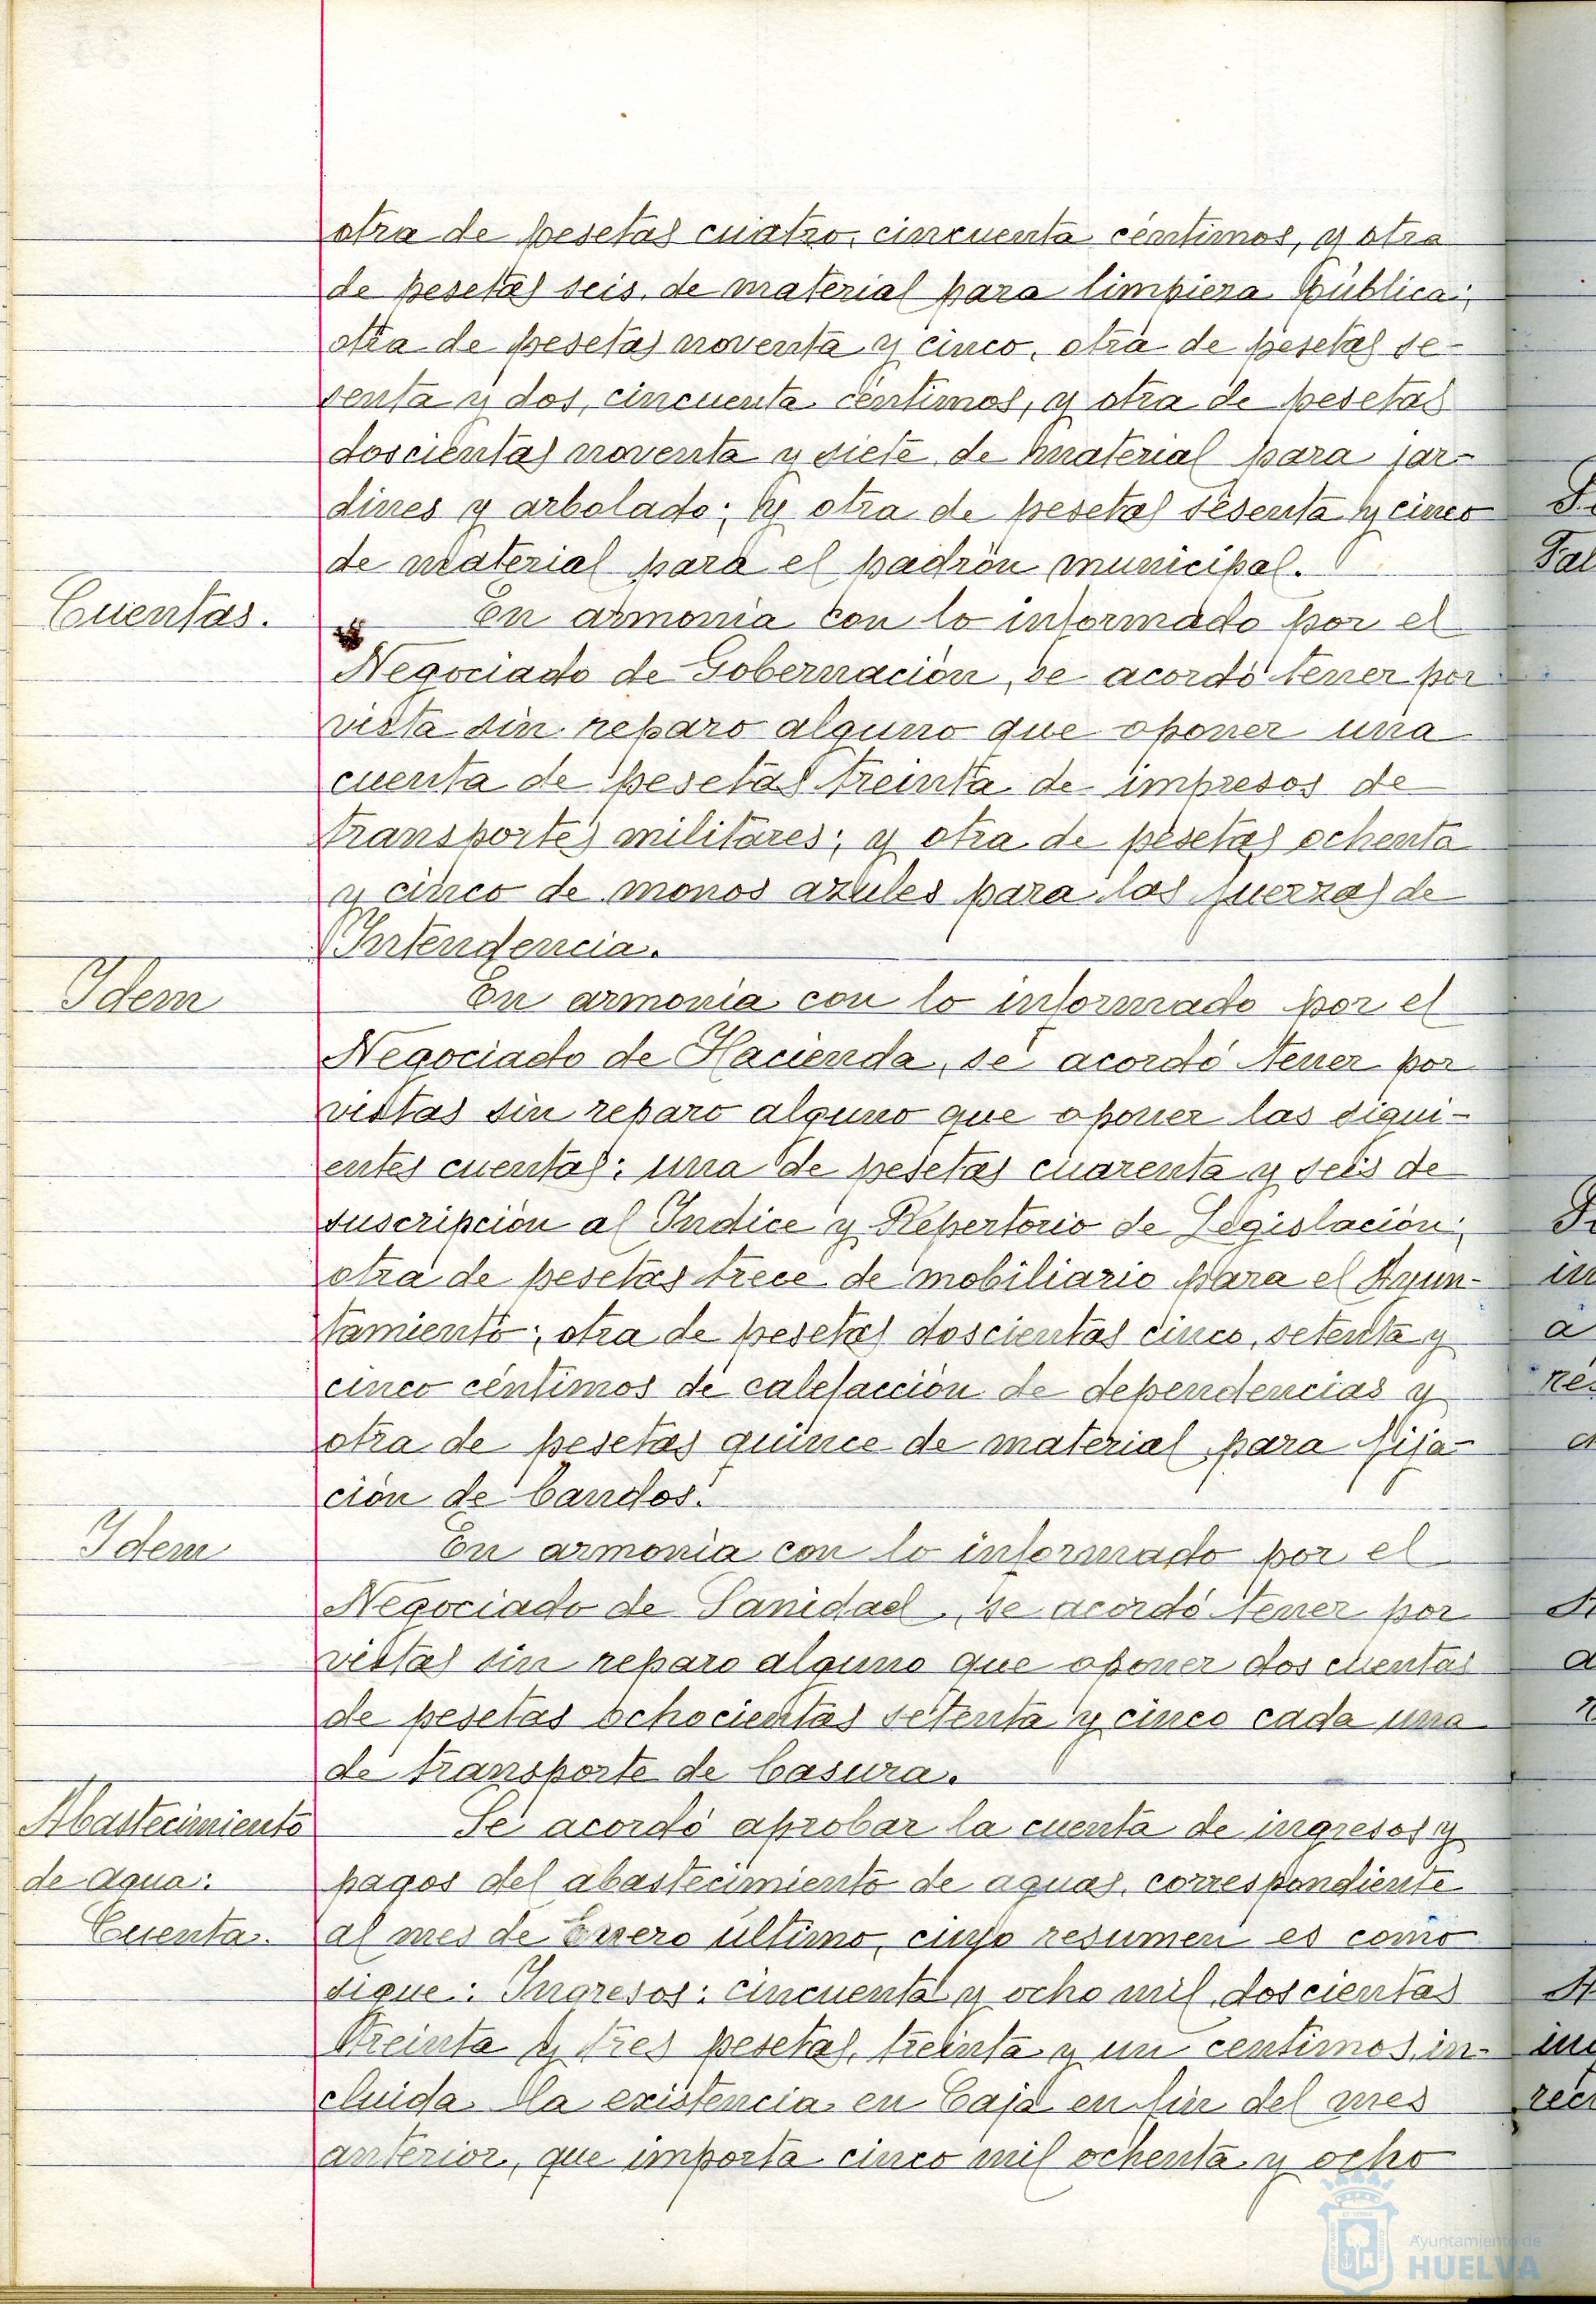 otra de pesetas cuatro, cincuenta céntimos, y otra
de pesetas seis, de material para limpieza Pública;
otra de pesetas noventa y cinco, otra de pesetas se-
senta y dos, cincuenta céntimos, y otra de pesetas
doscientas noventa y siete, de material para jar-
dines y arbolado; y otra de pesetas sesenta y cinco
de material para el padrón municipal.
Cuentas.
En armonía con lo informado por el
Negociado de Gobernación, se acordó tener por
vista sin reparo alguno que oponer una
cuenta de pesetas treinta de impresos de
transportes militares; y otra de pesetas ochenta
y cinco de monos azules para las fuerzas de
Intendencia.
Idem
En armonía con lo informado por el
Negociado de Hacienda, se acordó tener por
vistas sin reparo alguno que oponer las sigui-
entes cuentas: una de pesetas cuarenta y seis de
suscripción al Indice y Repertorio de Legislación;
otra de pesetas trece de mobiliario para el Ayun-
tamiento; otra de pesetas doscientas cinco, setenta y
cinco céntimos de calefacción de dependencias y
otra de pesetas quince de material para fija-
ción de bandos.
Idem
En armonía con lo informado por el
Negociado de Sanidad, se acordó tener por
vistas sin reparo alguno que oponer dos cuentas
de pesetas ochocientas setenta y cinco cada una
de transporte de basura.
Abastecimiento
de agua:
Cuenta.
Se acordó aprobar la cuenta de ingresos y
pagos del abastecimiento de aguas, correspondiente
al mes de Enero último, cuyo resumen es como
sigue: Ingresos: cincuenta y ocho mil doscientas
treinta y tres pesetas, treinta y un centimos, in-
cluida la existencia en Caja en fin del mes
anterior, que importa cinco mil ochenta y ocho
Ayuntamiento de
HUELVA